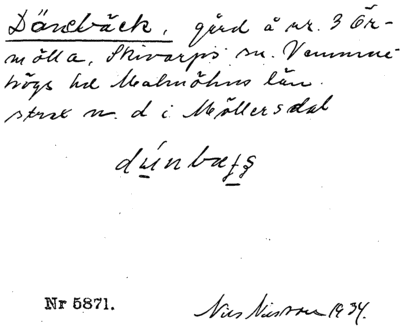 Dänebäck, gård å nr. 3 Ör-
mölla, Skivarps sn. Vemmen-
högs hd Malmöhus län.
strax n. d i Möllersdal
dúnbæʒʒ
Nr 5871.
Nils Nilsson 1934.